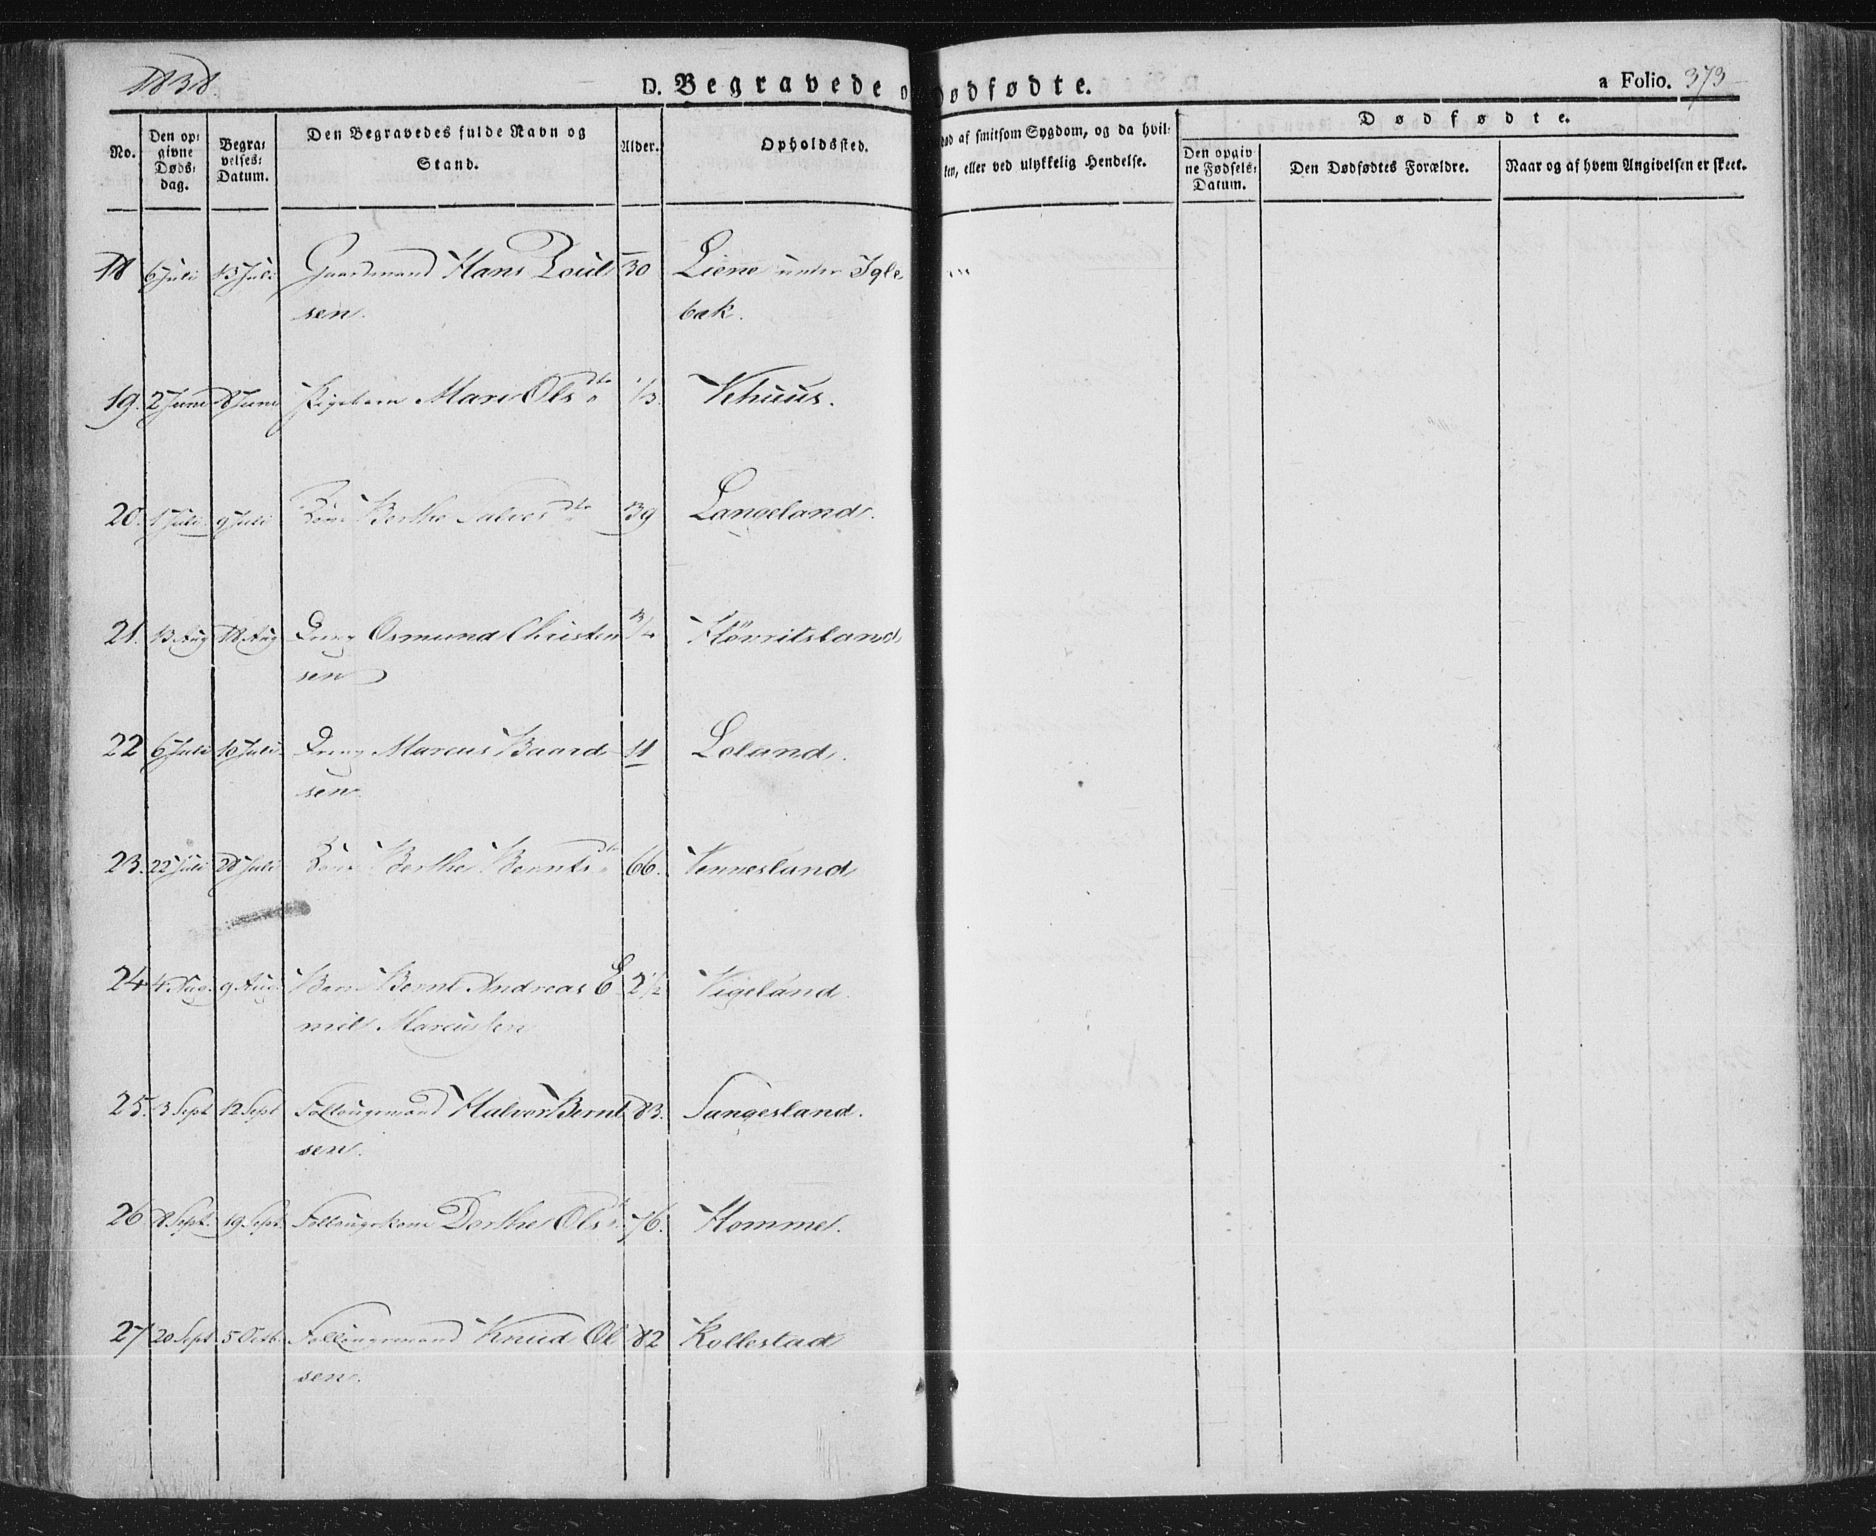 1838.
D. Begravede o
ødfødte.
a Folio. 373
No.
Den op-
givne
Døds-
dag.
Begra-
velses-
Datum.
Den Begravedes fulde Navn og
Stand.
Alder.
Opholdssted.
død af smitsom Sygdom, og da hvil-
ken, eller ved ulykkelig Hendelse.
Dødfødte.
Den opgiv
ne Fødsels-
Datum.
Den Dødfødtes Forældre.
Naar og af hvem Angivelsen er skeet.
18 6 Juli 13 Juli Gaardmand Hans Poul 30 Liene under Igle
sen. bæk.
19. 2 Juni 8 Juni Pigebarn Maren Ols dtr 1/3. Vehuus.
20. 1 Juli 9 Juli Kone Berthe Salves dtr 39 Langeland.
21. 13 Aug 18 Aug Dreng Osmund Christen 3/4 Høvritsland
sen
22 6 Juli 10 Juli Dreng Marcus Baard 11 Loland.
sen
23. 22 Juli 28 Juli Kone Berthe Bernts dr 66. Vennesland
24 4 Aug. 9 Aug. Barn Bernt Andreas E 2 1/2 Vigeland.
mil Marcussen
25. 3 Sept 12 Sept Follaugsmand Halvor Bernt 83. Sangesland.
sen.
26 8 Sept. 19 Sept. Follaugskone Dorthe Ols dr 76. Homme.
27 20 Sept. 5 Octb. Follaugsmand Knud Ol 82 Kollestad
sen.